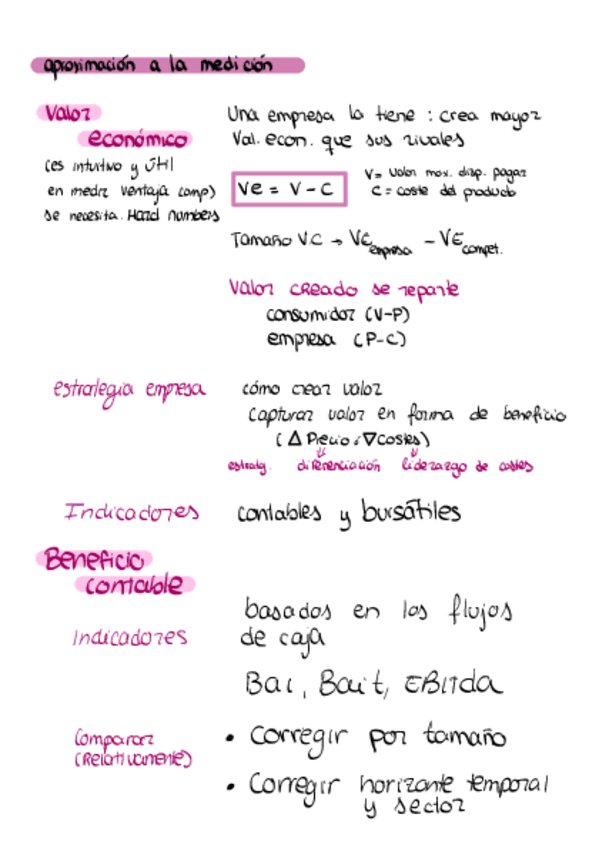 aproximación a la medición
Valor
económico
(es intuitivo y útil
en medir ventaja comp)
se necesita. Hard numbers
Una empresa la tiene : crea mayor
Val. econ. que sus rivales
Ve = V - C
V= valor max. disp. pagar
C = coste del producto
Tamaño V.C → VE empresa - VE compet.
Valor creado se reparte
consumidor (V-P)
empresa (P-C)
estrategia empresa
cómo crear valor
Capturar valor en forma de beneficio
( Δ Precio ó ∇ Costes)
estratg. diferenciación liderazgo de costes
Indicadores contables y bursátiles
Beneficio
contable
Indicadores
basados en los flujos
de caja
Bai, Bait, EBITda
Comparar
(Relativamente)
• Corregir por tamaño
• Corregir horizonte temporal
y sector